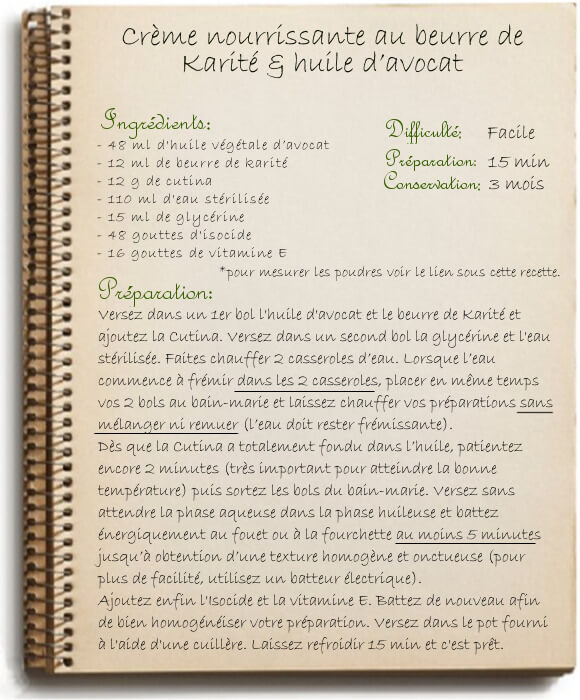 Crème nourrissante au beurre de
Karité & huile d'avocat
Ingrédients:
- 48 ml d'huile végétale d'avocat
- 12 ml de beurre de karité
- 12 g de cutina
- 110 ml d'eau stérilisée
- 15 ml de glycérine
- 48 gouttes d'isocide
- 16 gouttes de vitamine E
Difficulté: Facile
Préparation: 15 min
Conservation: 3 mois
*pour mesurer les poudres voir le lien sous cette recette.
Préparation:
Versez dans un 1er bol l'huile d'avocat et le beurre de Karité et
ajoutez la Cutina. Versez dans un second bol la glycérine et l'eau
stérilisée. Faites chauffer 2 casseroles d'eau. Lorsque l'eau
commence à frémir dans les 2 casseroles, placer en même temps
vos 2 bols au bain-marie et laissez chauffer vos préparations sans
mélanger ni remuer (l'eau doit rester frémissante).
Dès que la Cutina a totalement fondu dans l'huile, patientez
encore 2 minutes (très important pour atteindre la bonne
température) puis sortez les bols du bain-marie. Versez sans
attendre la phase aqueuse dans la phase huileuse et battez
énergiquement au fouet ou à la fourchette au moins 5 minutes
jusqu'à obtention d'une texture homogène et onctueuse (pour
plus de facilité, utilisez un batteur électrique).
Ajoutez enfin l'Isocide et la vitamine E. Battez de nouveau afin
de bien homogénéiser votre préparation. Versez dans le pot fourni
à l'aide d'une cuillère. Laissez refroidir 15 min et c'est prêt.